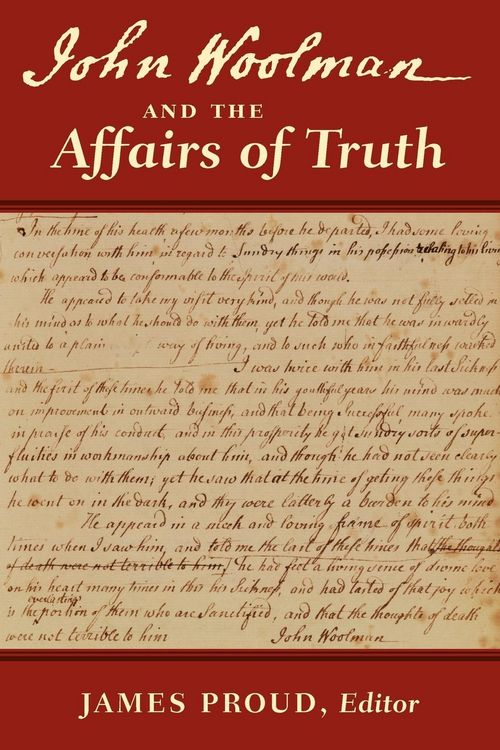 John Woolman
AND THE
Affairs of Truth
In the time of his health a few months before he departed, I had some loving
conversation with him in regard to Sundry things in his possession relating to his living
which appeared to be conformable to the spirit of this world.
He appeared to take my visit very kind, and though he was not fully settled in
his mind as to what he should do with them, yet he told me that he was inwardly
united to a plain way of living, and to such who in faithfulness walked
therein — I was twice with him in his last Sickness
and the first of these times he told me that in his youthful years his mind was much
on improvement in outward business, and that being Successful many spoke
in praise of his conduct, and in this prosperity he got sundry sorts of super-
fluities in workmanship about him, and though he had not seen clearly
what to do with them; yet he saw that at the time of geting these things
he went on in the dark, and they were latterly a burden to his mind
He appeared in a meek and loving frame of spirit both
times when I saw him, and told me the last of these times that the thoughts
of death were not terrible to him, he had felt a living sense of divine love
on his heart many times in this his Sickness, and had tasted of that joy which
is the everlasting portion of them who are Sanctified, and that the thoughts of death
were not terrible to him John Woolman
JAMES PROUD, Editor